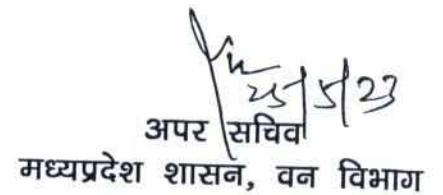 25/5/23
अपर सचिव
मध्यप्रदेश शासन, वन विभाग